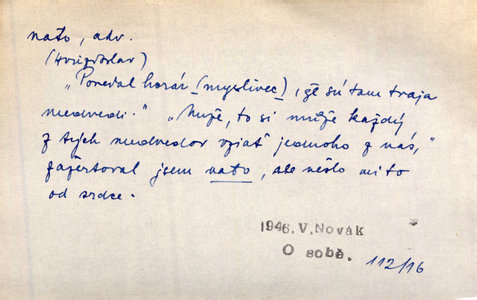 nato, adv.
(Hviezdoslav)
„Povedal horár (myslivec), že sú tam traja
medvedi." „Nuže, to si může každý
z tých medvedov vziať jednoho z nás,"
zažertoval jsem nato, ale nešlo mi to
od srdce.
1946. V. Novák
O sobě. 112/16